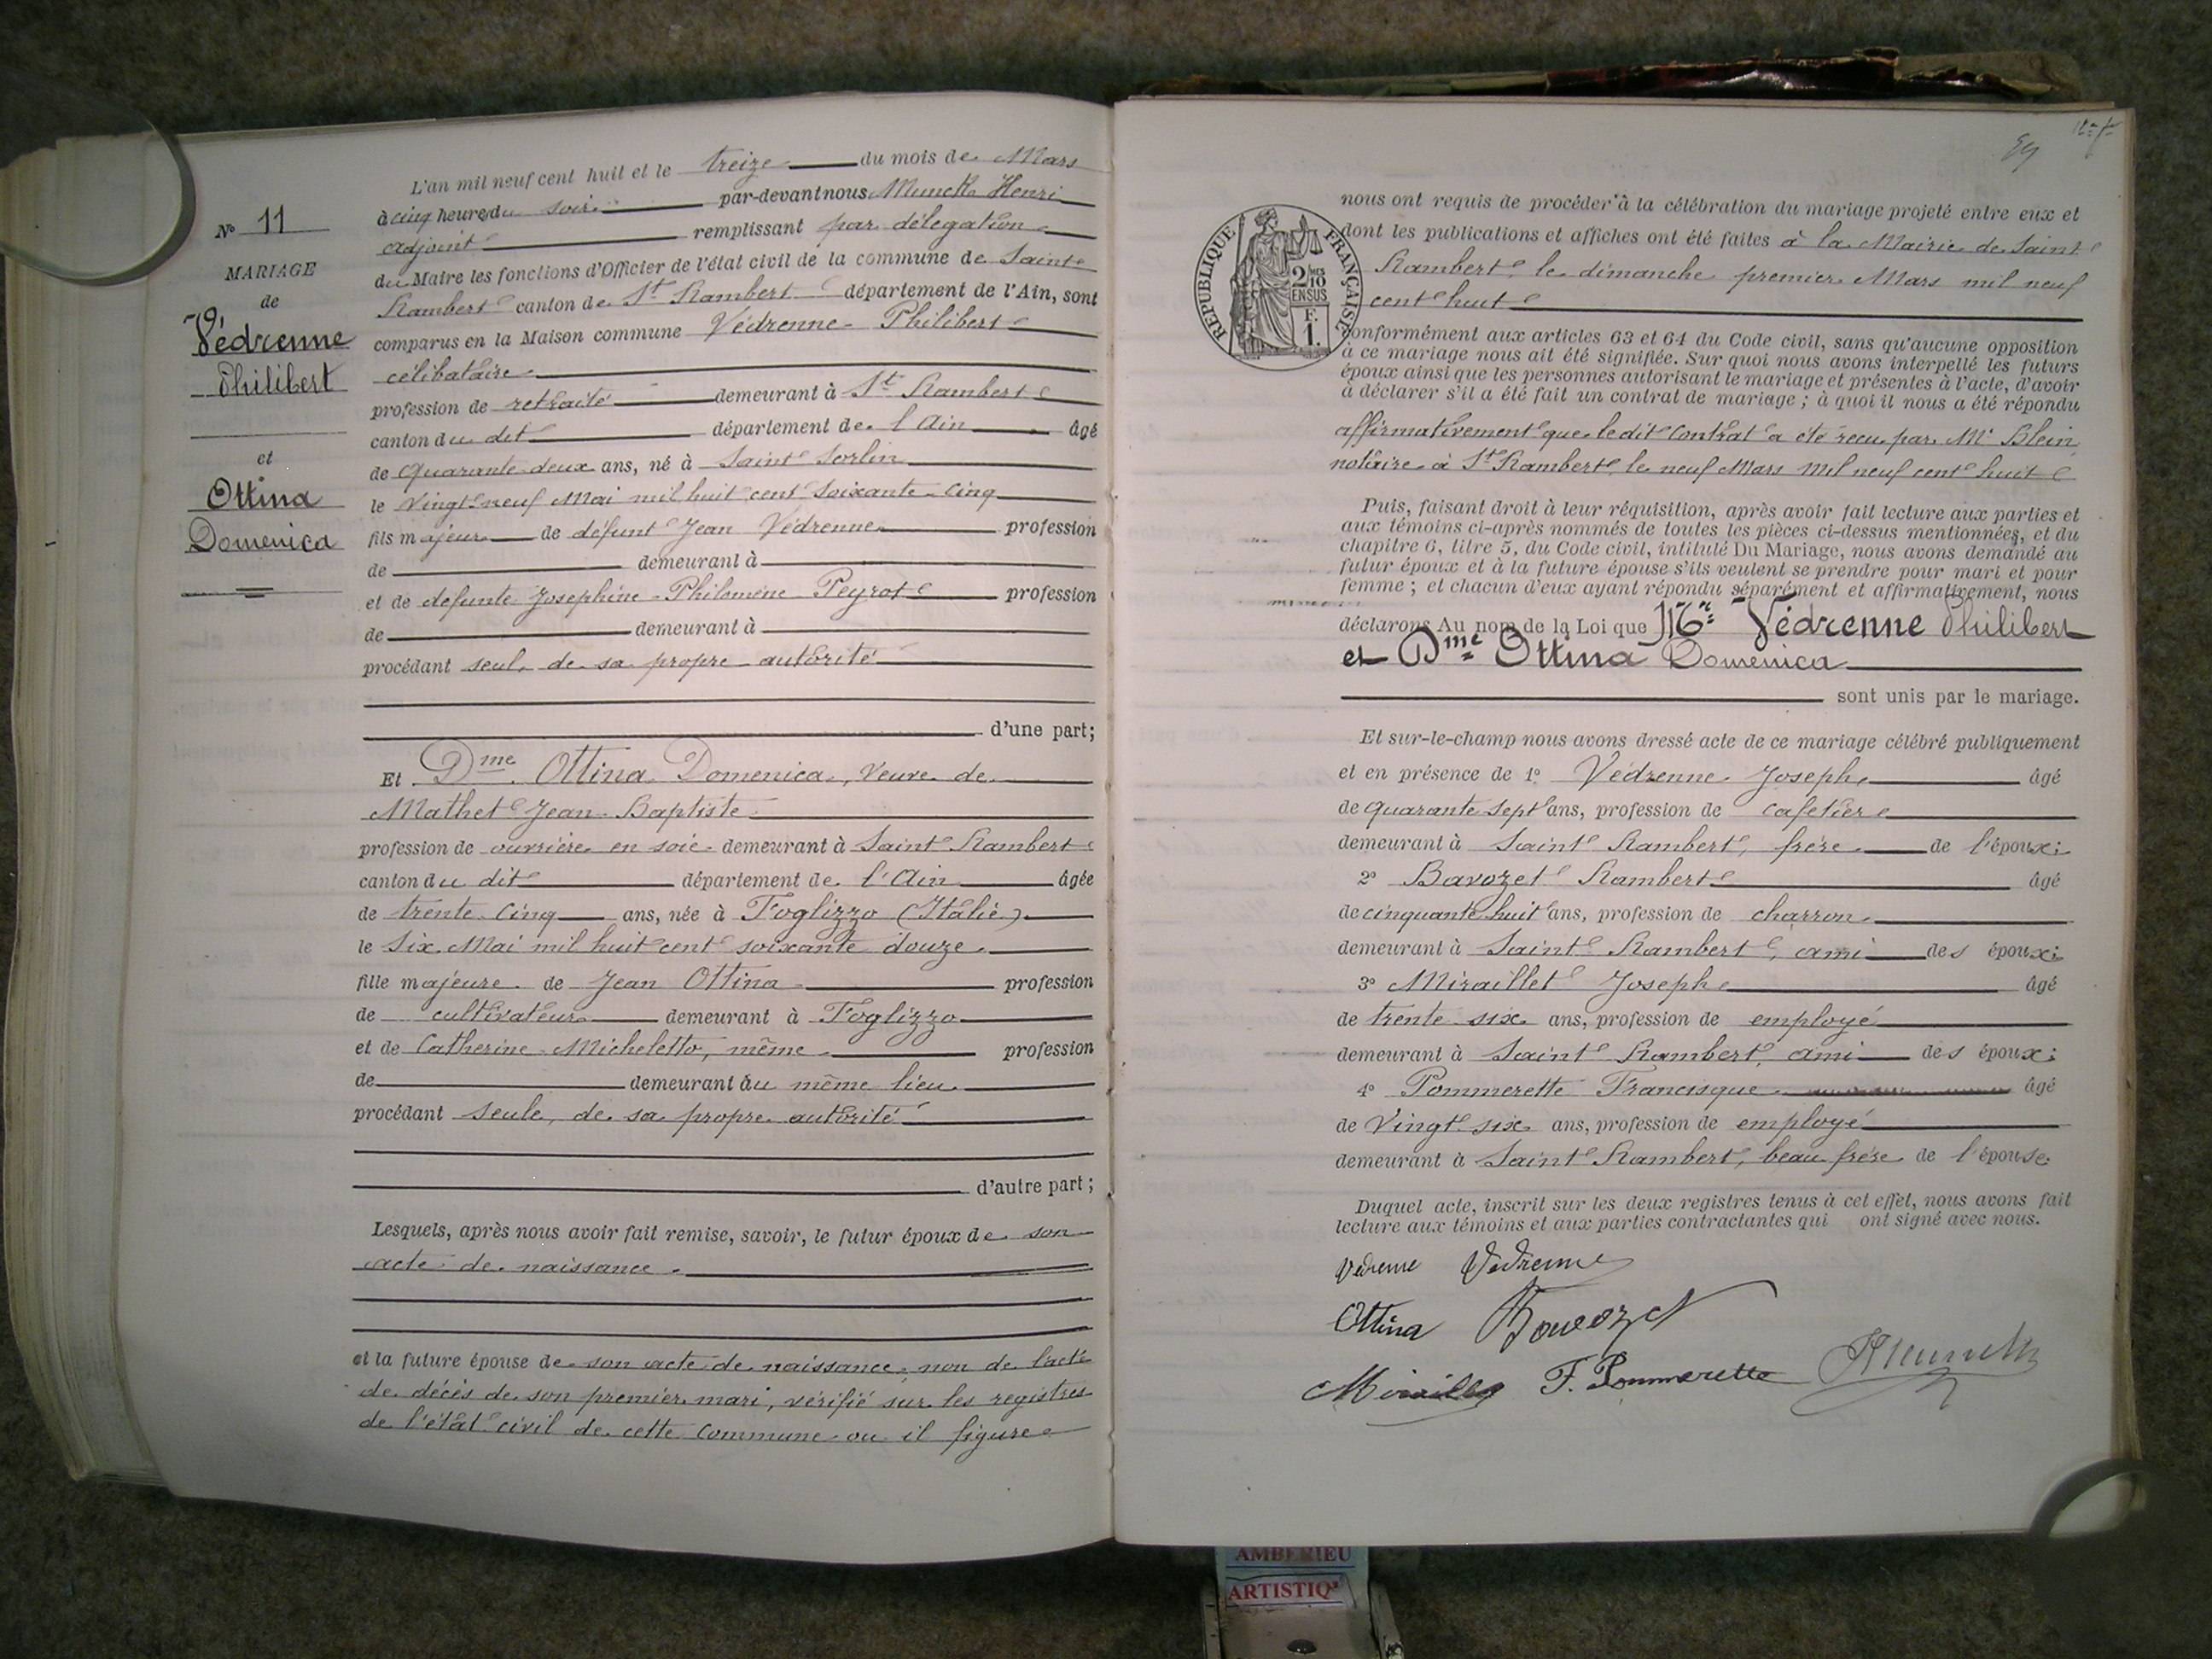 N° 11
MARIAGE
de
Védrenne
Philibert
et
Ottina
Domenica
L'an mil neuf cent huit et le treize du mois de Mars
à cinq heures du soir par-devant nous Munck Henri
adjoint remplissant par délégation
du Maire les fonctions d'Officier de l'état civil de la commune de Saint
Rambert canton de St Rambert département de l'Ain, sont
comparus en la Maison commune Védrenne Philibert
célibataire
profession de retraité demeurant à St Rambert
canton du dit département de l'Ain âgé
de quarante-deux ans, né à Saint Sorlin
le vingt-neuf Mai mil huit cent soixante-cinq
fils majeur de défunt Jean Védrenne profession
de demeurant à
et de défunte Joséphine-Philomène Peyrot profession
de demeurant à
procédant seul, de sa propre autorité
d'une part;
Et Dme Ottina Domenica, veuve de
Mathet Jean-Baptiste
profession de ouvrière en soie demeurant à Saint Rambert
canton du dit département de l'Ain âgée
de trente-cinq ans, née à Foglizzo (Italie)
le six Mai mil huit cent soixante douze
fille majeure de Jean Ottina profession
de cultivateur demeurant à Foglizzo
et de Catherine Micheletto, même profession
de demeurant au même lieu
procédant seule, de sa propre autorité
d'autre part;
Lesquels, après nous avoir fait remise, savoir, le futur époux de son
acte de naissance
et la future épouse de son acte de naissance, non de l'acte
de décès de son premier mari, vérifié sur les registres
de l'état civil de cette commune ou il figure
59
RÉPUBLIQUE FRANÇAISE
2/10
EN SUS
F.
1.
nous ont requis de procéder à la célébration du mariage projeté entre eux et
dont les publications et affiches ont été faites à la Mairie de Saint
Rambert le dimanche premier Mars mil neuf
cent huit
conformément aux articles 63 et 64 du Code civil, sans qu'aucune opposition
à ce mariage nous ait été signifiée. Sur quoi nous avons interpellé les futurs
époux ainsi que les personnes autorisant le mariage et présentes à l'acte, d'avoir
à déclarer s'il a été fait un contrat de mariage; à quoi il nous a été répondu
affirmativement que le dit contrat a été reçu par Me Blein
notaire à St Rambert le neuf Mars mil neuf cent huit
Puis, faisant droit à leur réquisition, après avoir fait lecture aux parties et
aux témoins ci-après nommés de toutes les pièces ci-dessus mentionnées, et du
chapitre 6, titre 5, du Code civil, intitulé Du Mariage, nous avons demandé au
futur époux et à la future épouse s'ils veulent se prendre pour mari et pour
femme; et chacun d'eux ayant répondu séparément et affirmativement, nous
déclarons Au nom de la Loi que Mr Védrenne Philibert
et Dme Ottina Domenica
sont unis par le mariage.
Et sur-le-champ nous avons dressé acte de ce mariage célébré publiquement
et en présence de 1° Védrenne Joseph âgé
de quarante sept ans, profession de cafetier
demeurant à Saint Rambert, frère de l'époux;
2° Bavozet Rambert âgé
de cinquante huit ans, profession de charron
demeurant à Saint Rambert, ami des époux;
3° Miraillet Joseph âgé
de trente six ans, profession de employé
demeurant à Saint Rambert, ami des époux;
4° Pommerette Francisque âgé
de Vingt-six ans, profession de employé
demeurant à Saint Rambert, beau frère de l'épouse
Duquel acte, inscrit sur les deux registres tenus à cet effet, nous avons fait
lecture aux témoins et aux parties contractantes qui ont signé avec nous.
Vedrenne Vedrenne
Ottina Bavozet
F. Pommerette
AMBERIEU
ARTISTIQ